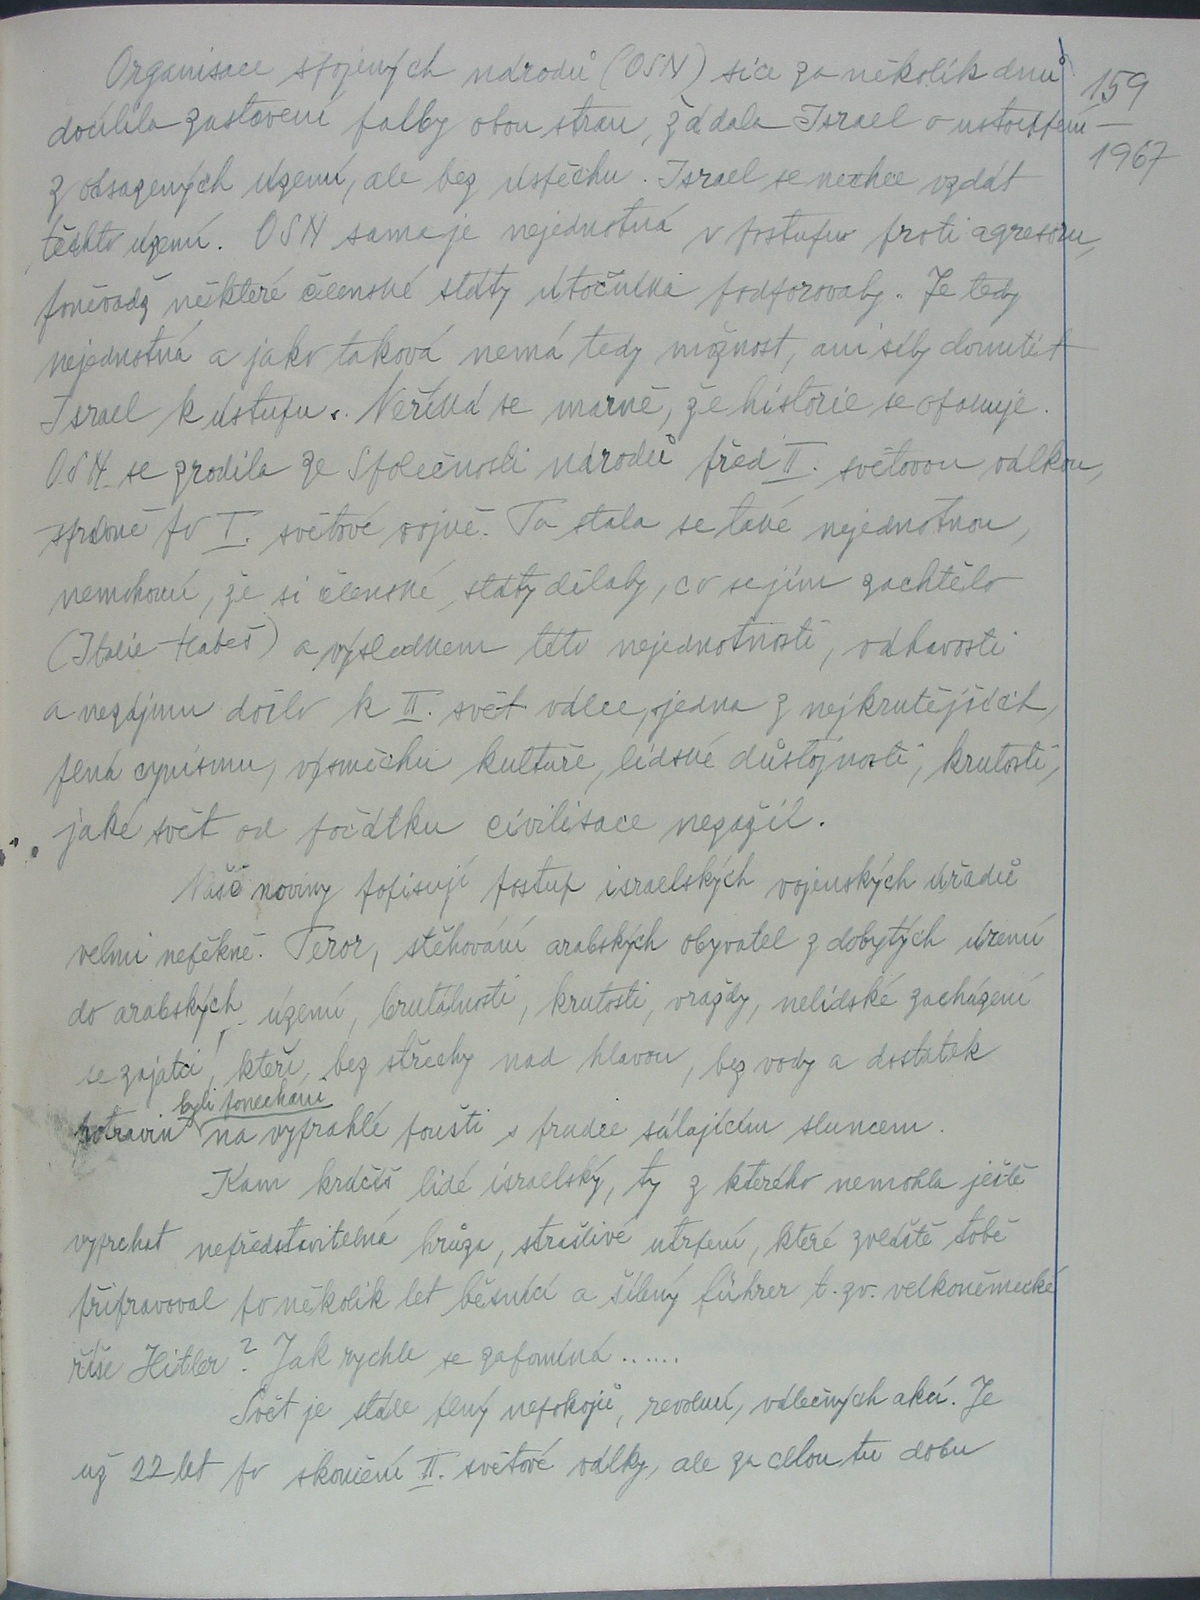 Organisace spojených národů (OSN) sice za několik dnů
docílila zastavení palby obou stran, žádala Israel o ustoupení
z obsazených území, ale bez úspěchu. Israel se nechce vzdát
těchto území. OSN sama je nejednotná v postupu proti agresoru,
poněvadž některé členské státy útočníka podporovaly. Je tedy
nejednotná a jako taková nemá tedy možnost, ani síly donutit
Israel k ústupu. Neříká se marně, že historie se opakuje.
OSN se zrodila ze Společnosti národů před II. světovou válkou,
správně po I. světové vojně. Ta stala se také nejednotnou,
nemohoucí, že si členské státy dělaly, co se jim zachtělo
(Italie-Habeš) a výsledkem této nejednotnosti, váhavosti
a nezájmu došlo k II. svět válce, jedna z nejkrutějších,
plná cynismu, výsměchu kultuře, lidské důstojnosti, krutosti,
jaké svět od počátku civilisace nezažil.
Naše noviny popisují postup israelských vojenských úřadů
velmi nepěkně. Teror, stěhování arabských obyvatel z dobytých území
do arabských území, brutálnosti, krutosti, vraždy, nelidské zacházení
se zajatci, kteří, bez střechy nad hlavou, bez vody a dostatek
byli ponecháni
potravin na vyprahlé poušti s prudce sálajícím sluncem.
Kam kráčíš lide israelský, ty z kterého nemohla ještě
vyprchat nepředstavitelná hrůza, strašlivé utrpení, které zvláště tobě
připravoval po několik let běsnící a šílený führer t. zv. velkoněmecké
říše Hitler? Jak rychle se zapomíná ......
Svět je stále plný nepokojů, revolucí, válečných akcí. Je
už 22 let po skončení II. světové války, ale za celou tu dobu
159
1967